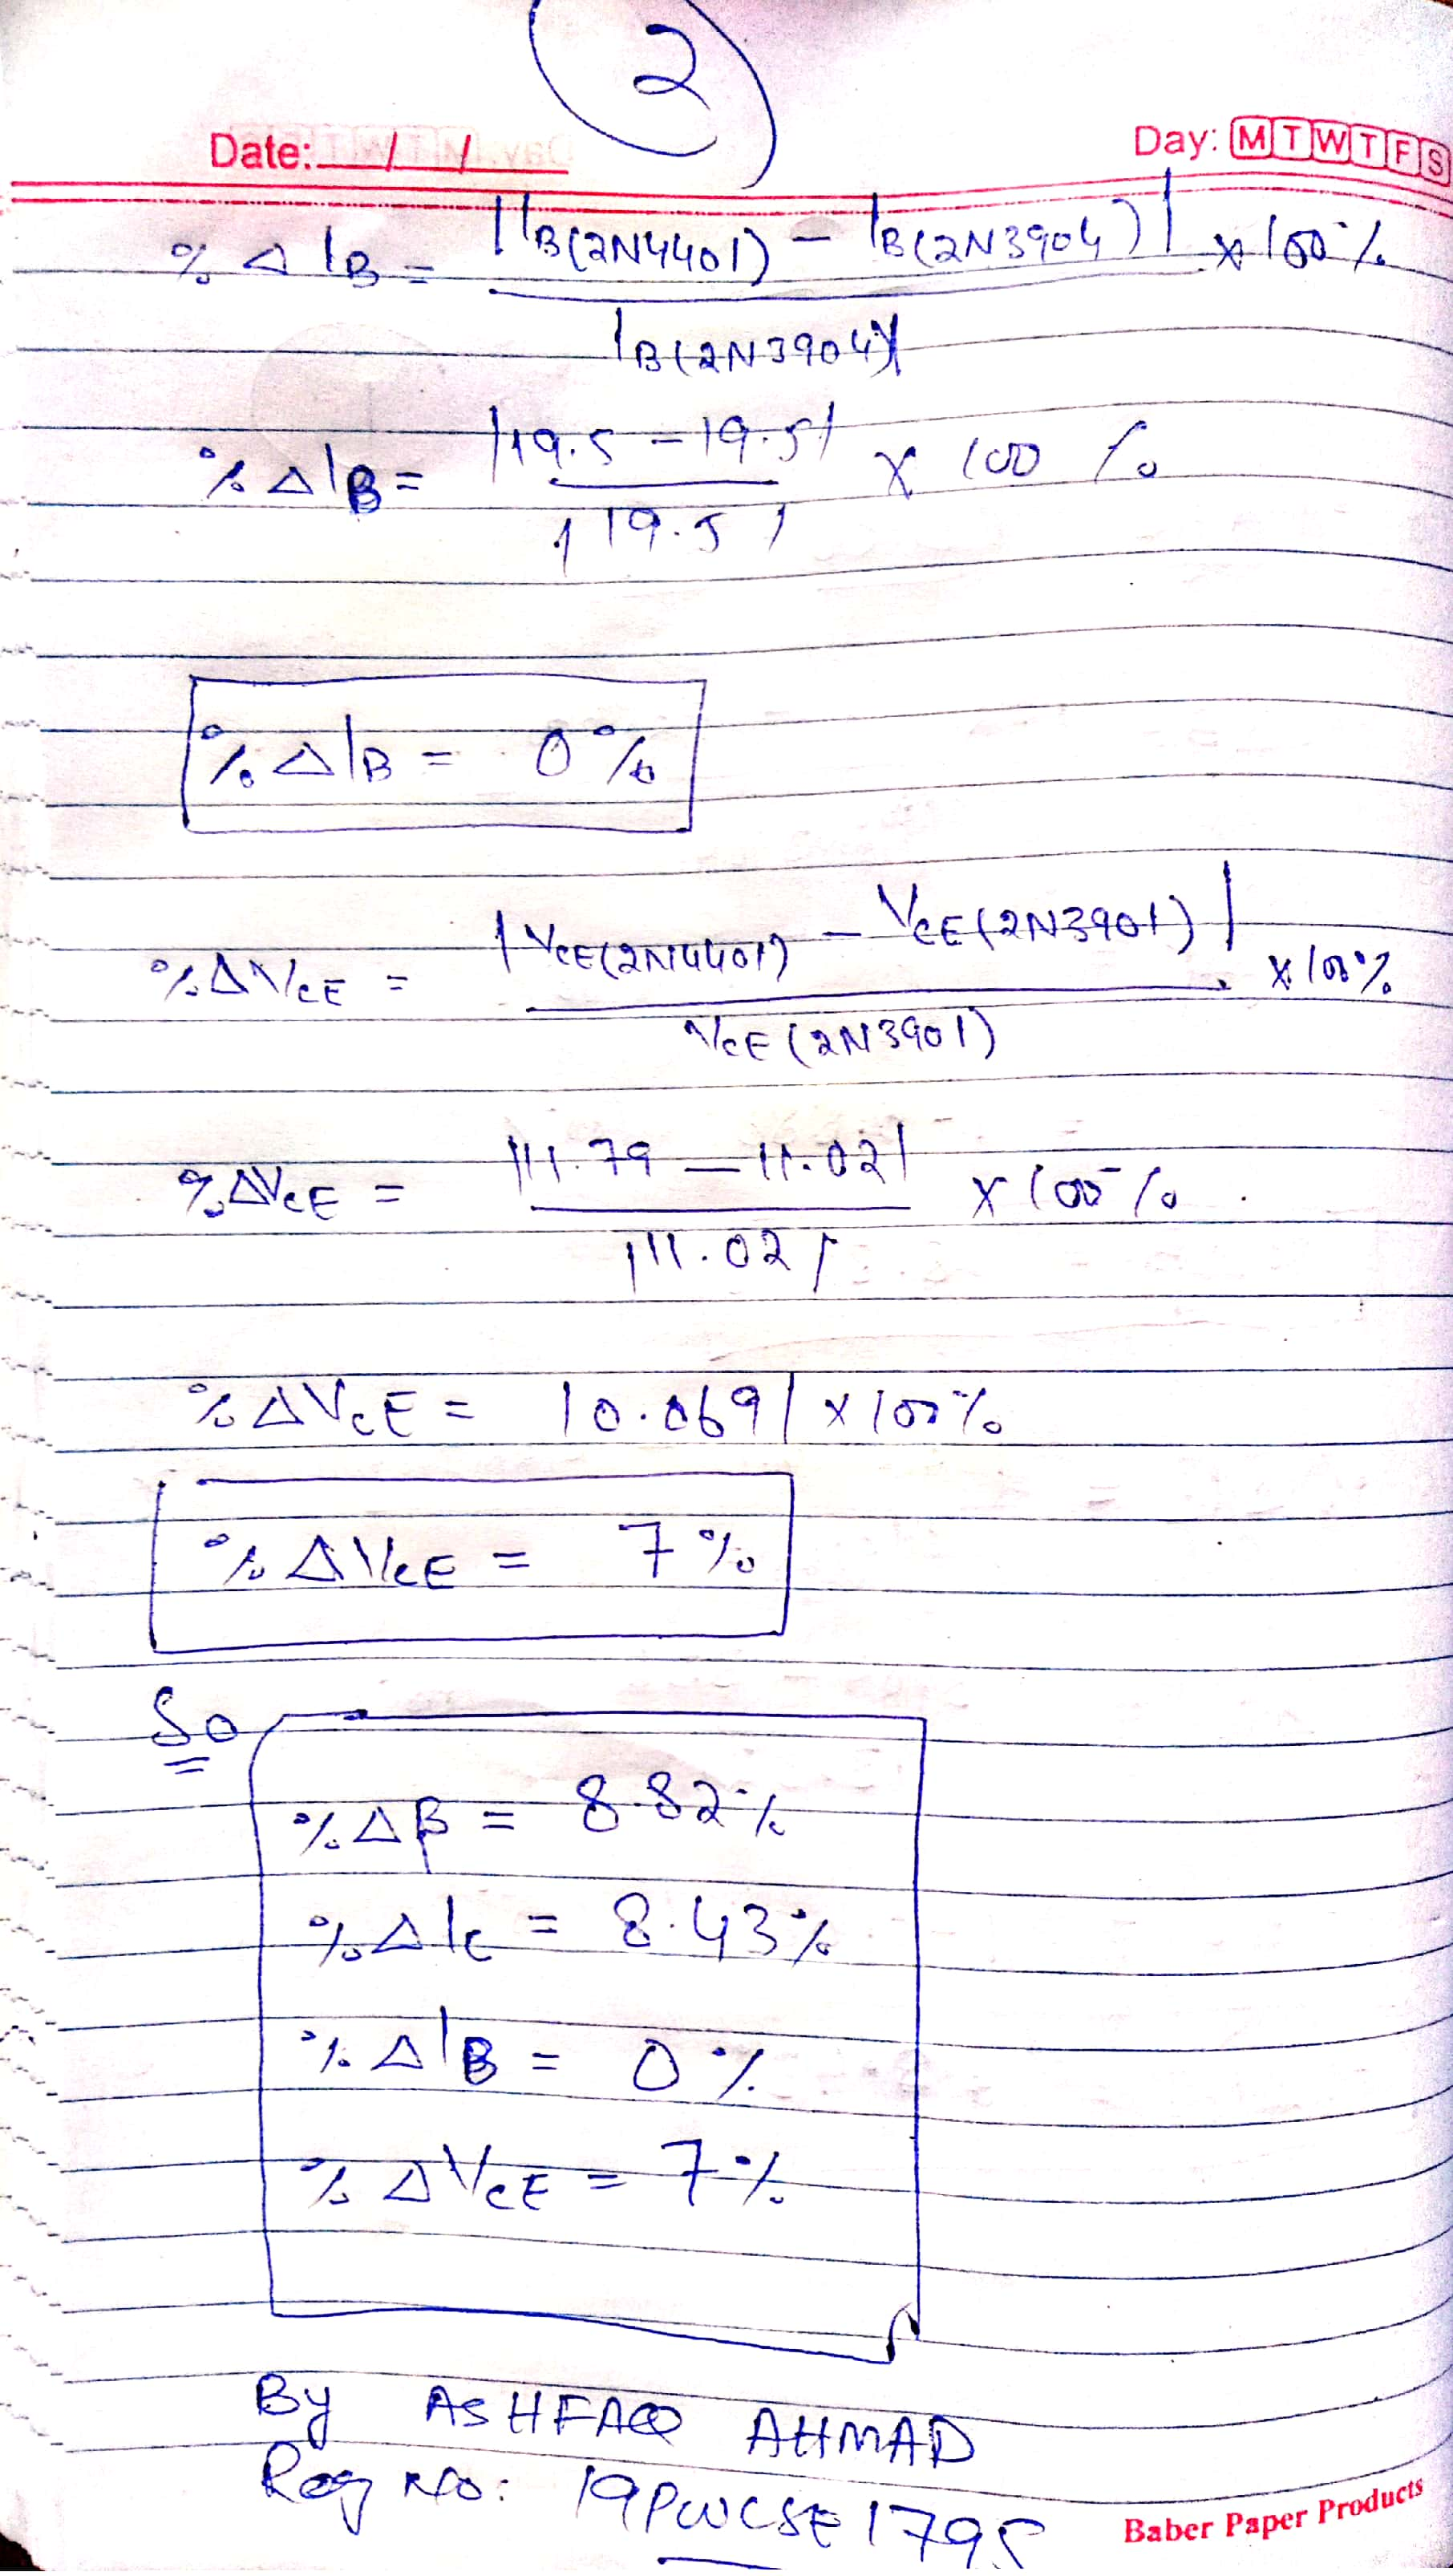 2
Date: / / Day: M T W T F S
% Δ IB = |IB(2N4401) - IB(2N3904)| x 100%
IB(2N3904)
% Δ IB = |19.5 - 19.5| x 100 %
|19.5|
% Δ IB = 0 %
% Δ VCE = |VCE(2N4401) - VCE(2N3901)| x 100%
VCE (2N3901)
% Δ VCE = |11.79 - 11.02| x 100%
|11.02|
% Δ VCE = |0.069| x 100%
% Δ VCE = 7 %
So
% Δ β = 8.82%
% Δ Ic = 8.43%
% Δ IB = 0 %
% Δ VCE = 7 %
By ASHFAQ AHMAD
Reg No: 19PWCSE1795
Baber Paper Products